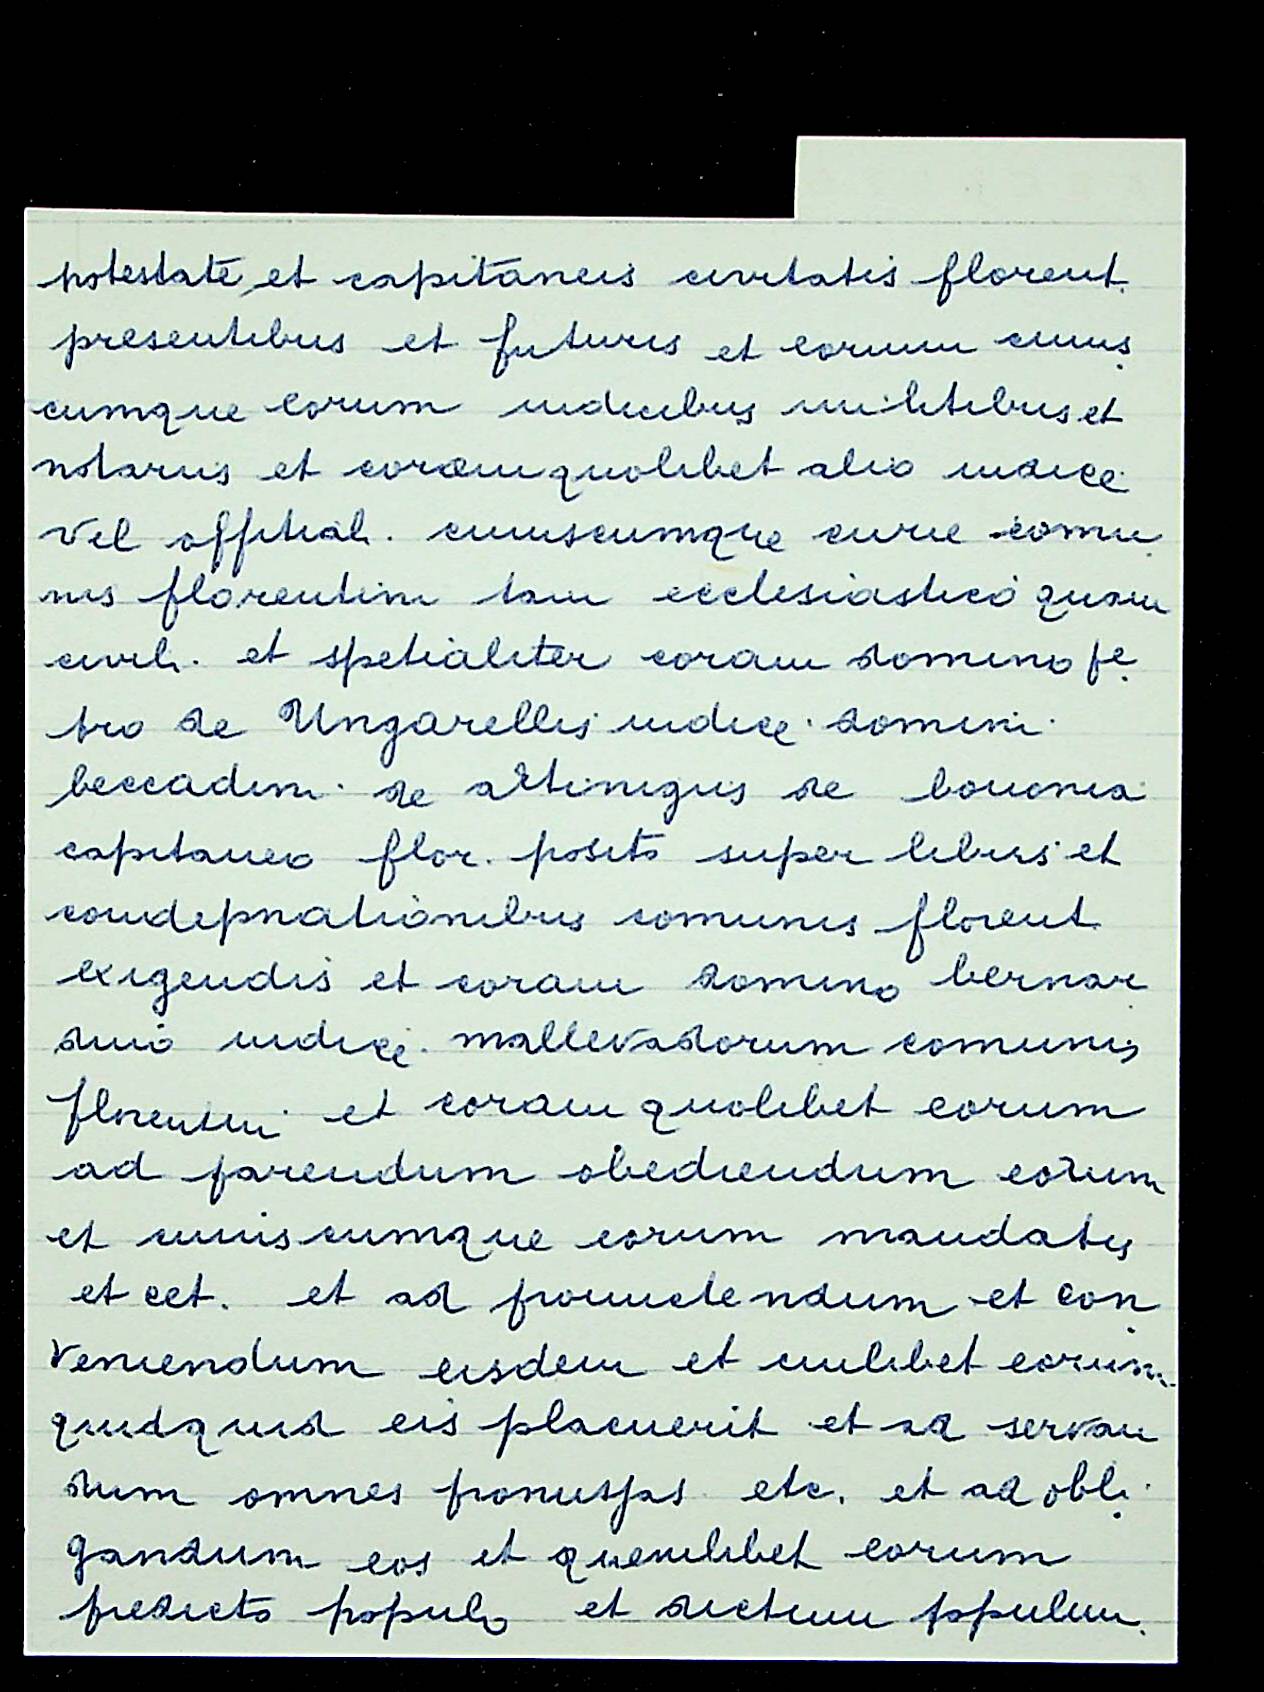 potestate et capitaneis civitatis florent.
presentibus et futuris et eorum cuius
cumque eorum iudicibus militibus et
notariis et coram quolibet alio iudice
vel offitiali. cuiuscumque curie comu
nis florentini tam ecclesiastico quam
civili. et spetialiter coram domino pe
tro de Ungarellis iudice domini
beccadini de artinigiis de bononia
capitaneo flor. posito super libris et
condepnationibus comunis florent.
exigendis et coram domino bernar
dino iudice mallevadorum comunis
florentini et coram quolibet eorum
ad parendum obediendum eorum
et cuiuscumque eorum mandatis
et cet. et ad promictendum et con
veniendum eisdem et cuilibet eorum
quidquid eis placuerit et ad servan
dum omnes promissas etc. et ad obli
gandum eos et quemlibet eorum
predicto populo et dictum populum.